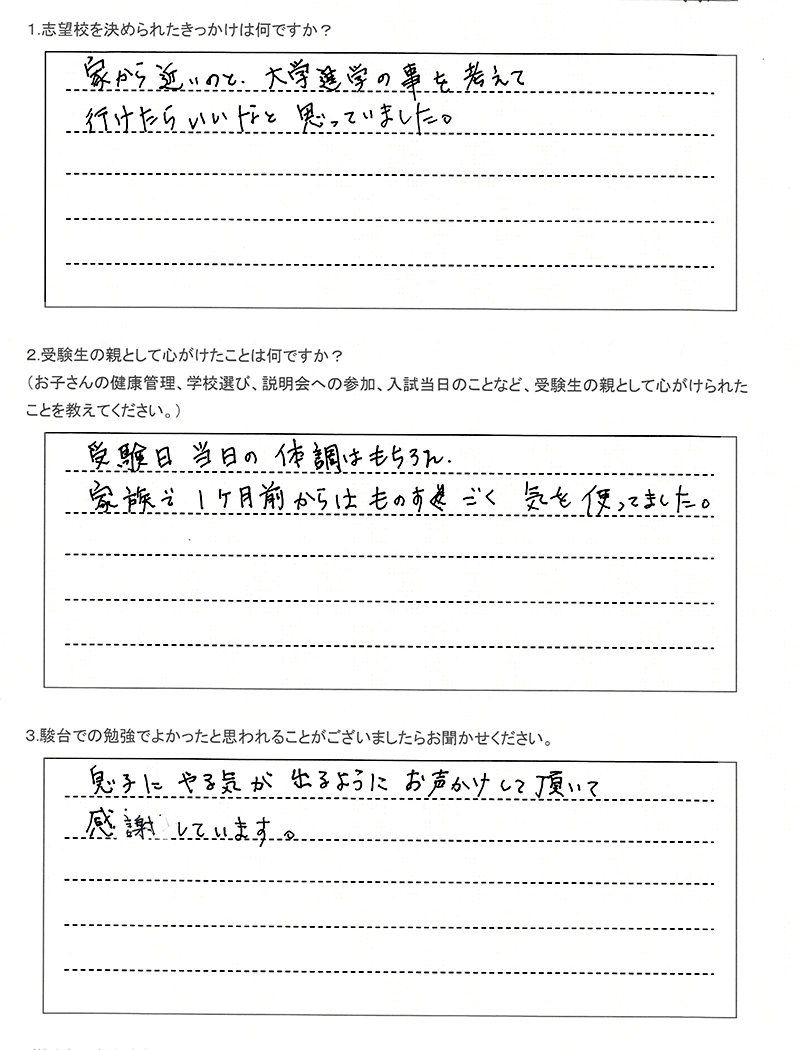 1.志望校を決められたきっかけは何ですか？
家から近いのと、大学進学の事を考えて
行けたらいいなと思っていました。
2.受験生の親として心がけたことは何ですか？
（お子さんの健康管理、学校選び、説明会への参加、入試当日のことなど、受験生の親として心がけられた
ことを教えてください。）
受験日当日の体調はもちろん、
家族で1ヶ月前からはものすごく気を使ってました。
3.駿台での勉強でよかったと思われることがございましたらお聞かせください。
息子にやる気が出るようにお声かけして頂いて
感謝しています。